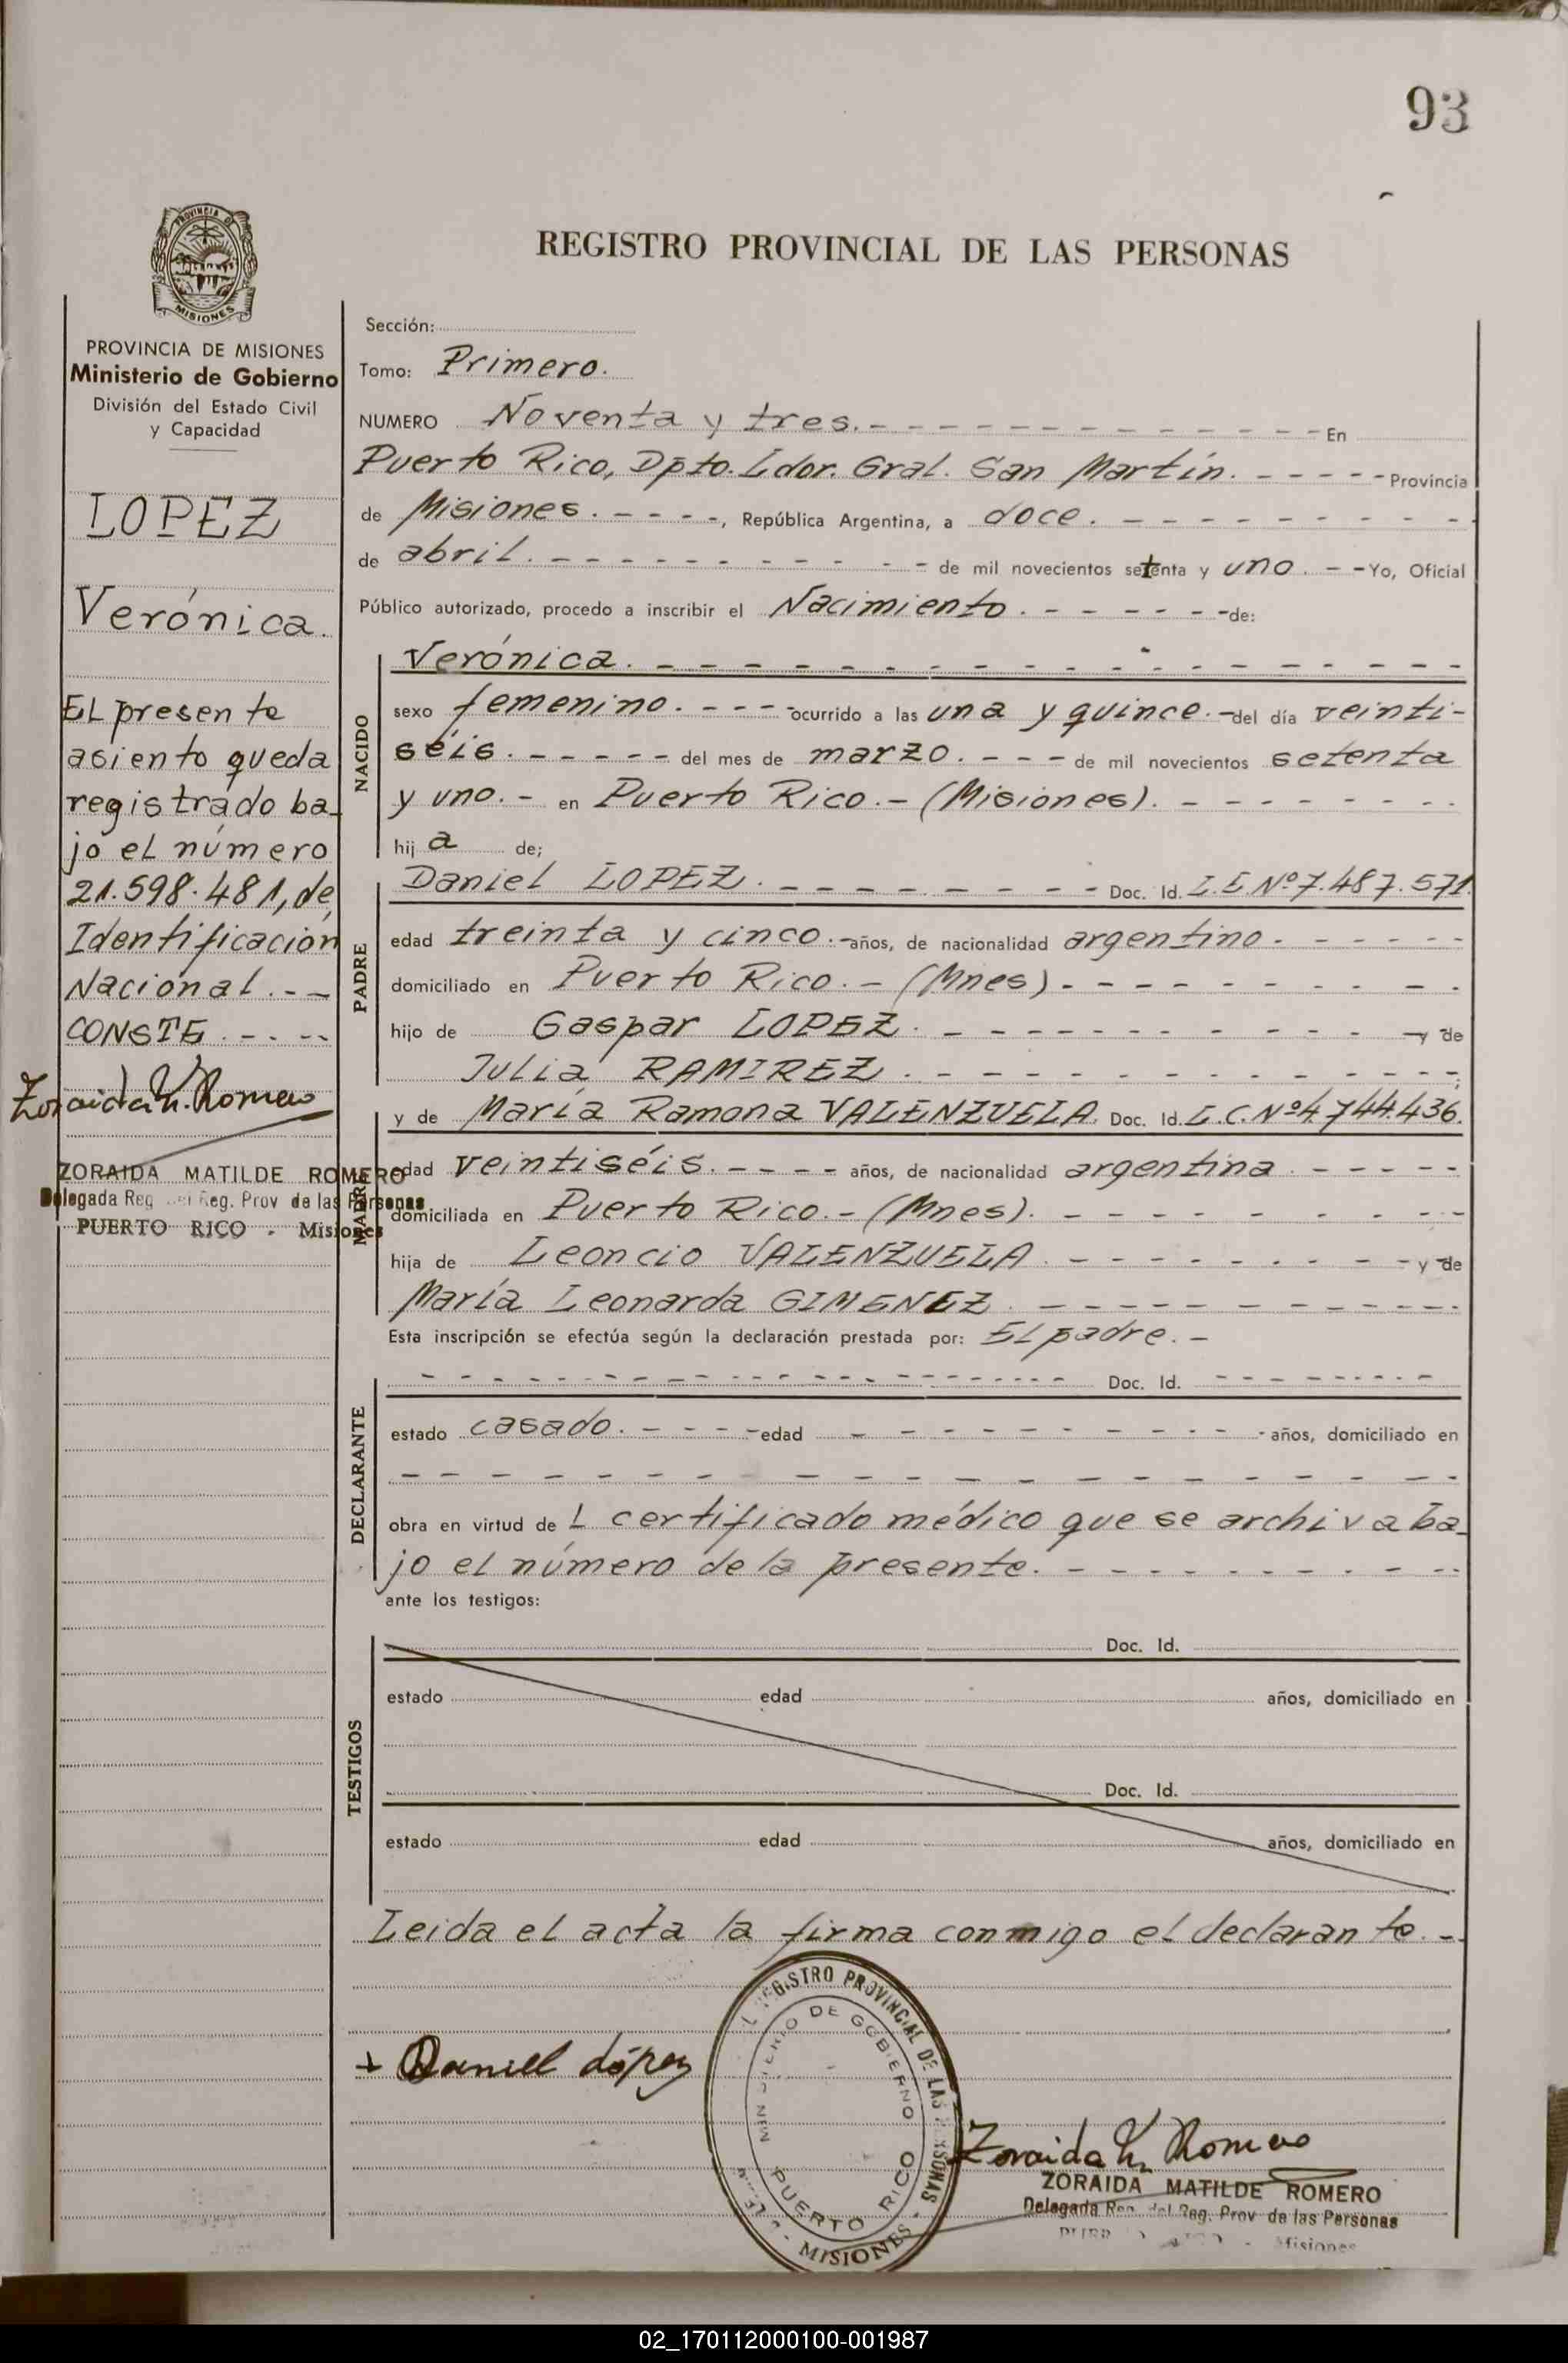 93
PROVINCIA DE
MISIONES
REGISTRO PROVINCIAL DE LAS PERSONAS
PROVINCIA DE MISIONES
Ministerio de Gobierno
División del Estado Civil
y Capacidad
LOPEZ
Verónica.
EL presente
asiento queda
registrado ba-
jo el número
21.598.481, de
Identificación
Nacional.--
CONSTE.----
Zoraida M. Romero
ZORAIDA MATILDE ROMERO
Delegada Reg. Prov de las Personas
PUERTO RICO - Misiones
Sección:
Tomo: Primero.
NUMERO Noventa y tres.- En
Puerto Rico, Dpto. Ldor. Gral. San Martín. - Provincia
de Misiones. - , República Argentina, a doce. -
de abril. - de mil novecientos setenta y uno. - Yo, Oficial
Público autorizado, procedo a inscribir el Nacimiento. - de:
NACIDO
Verónica. -
sexo femenino. - ocurrido a las una y quince.- del día veinti-
séis. - del mes de marzo. - de mil novecientos setenta
y uno.- en Puerto Rico.- (Misiones). -
hij a de;
PADRE
Daniel LOPEZ. - Doc. Id. L.E. Nº 7.487.571.
edad treinta y cinco.- años, de nacionalidad argentino. -
domiciliado en Puerto Rico.- (Mnes) -
hijo de Gaspar LOPEZ. - y de
Julia RAMIREZ. - ;
MADRE
y de María Ramona VALENZUELA. Doc. Id. L.C. Nº 4.744.436.
edad veintiséis. - años, de nacionalidad argentina. -
domiciliada en Puerto Rico.- (Mnes). -
hija de Leoncio VALENZUELA. - y de
María Leonarda GIMENEZ. -
Esta inscripción se efectúa según la declaración prestada por: EL padre. -
DECLARANTE
- Doc. Id. -
estado casado. - edad - años, domiciliado en
-
obra en virtud de L certificado médico que se archiva ba-
jo el número de la presente. -
ante los testigos:
TESTIGOS
Doc. Id.
estado edad años, domiciliado en
Doc. Id.
estado edad años, domiciliado en
Leida el acta la firma conmigo el declarante.-
+ Daniel López
REGISTRO PROVINCIAL DE LAS PERSONAS
MINISTERIO DE GOBIERNO
PUERTO RICO
- MISIONES -
Zoraida M. Romero
ZORAIDA MATILDE ROMERO
Delegada Reg. del Reg. Prov de las Personas
Misiones
02_170112000100-001987